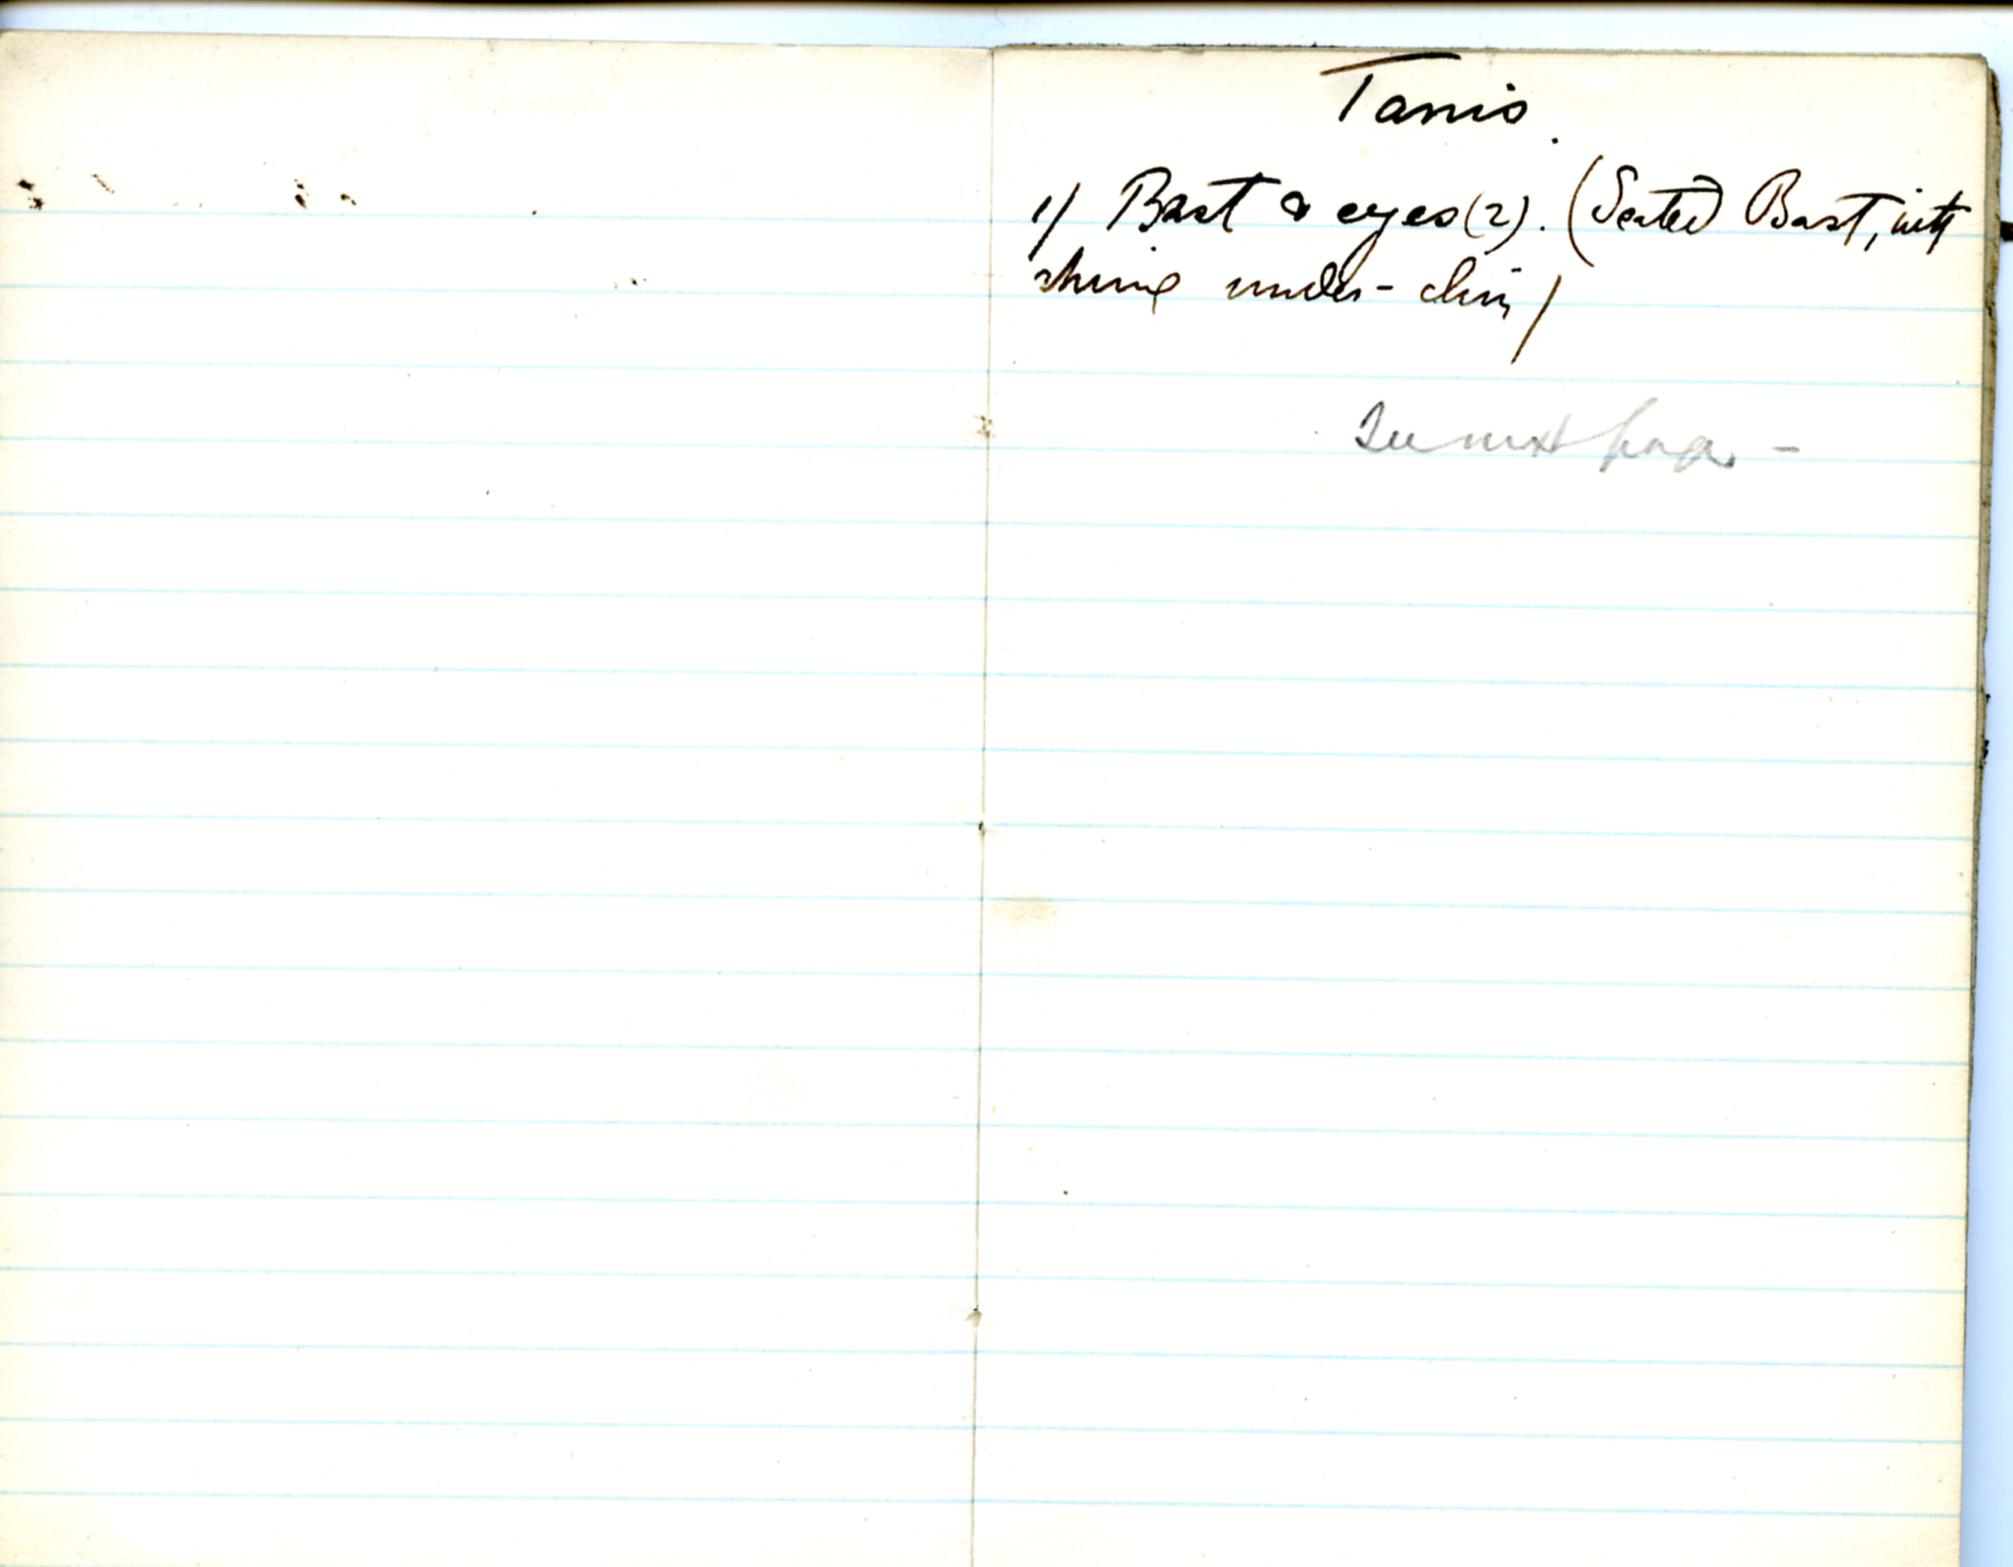 Tanis.
1) Bast & eyes (2). (Seated Bast, with
shrine under - chin)
See next page -